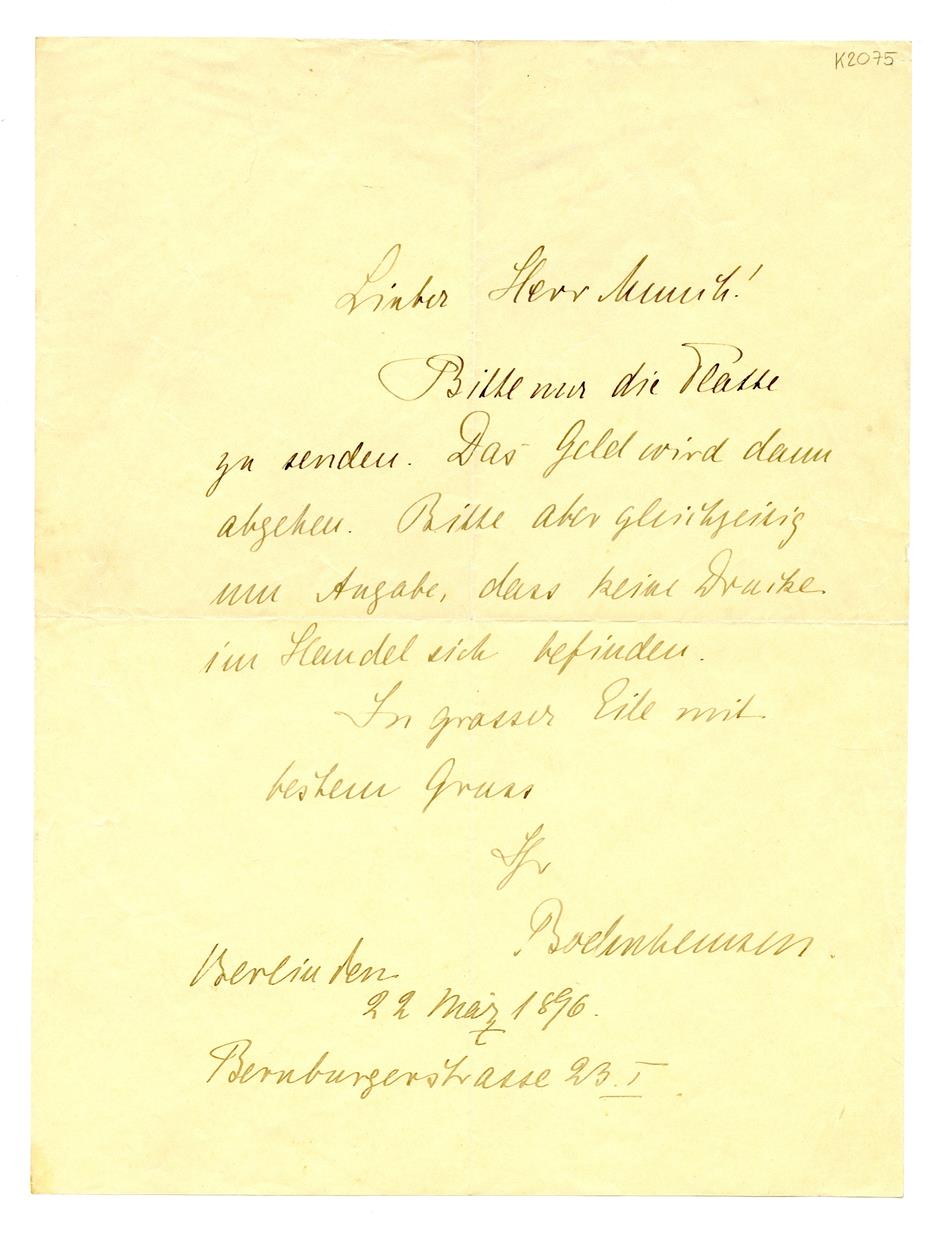 K2075
Lieber Herr Munch!
Bitte nur die Platte
zu senden. Das Geld wird dann
abgehen. Bitte aber gleichzeitig
um Angabe, dass keine Drucke
im Handel sich befinden.
In grosser Eile mit
bestem Gruss
Ihr
Bodenhausen.
Berlin den
22 März 1896.
Bernburgerstrasse 23.I